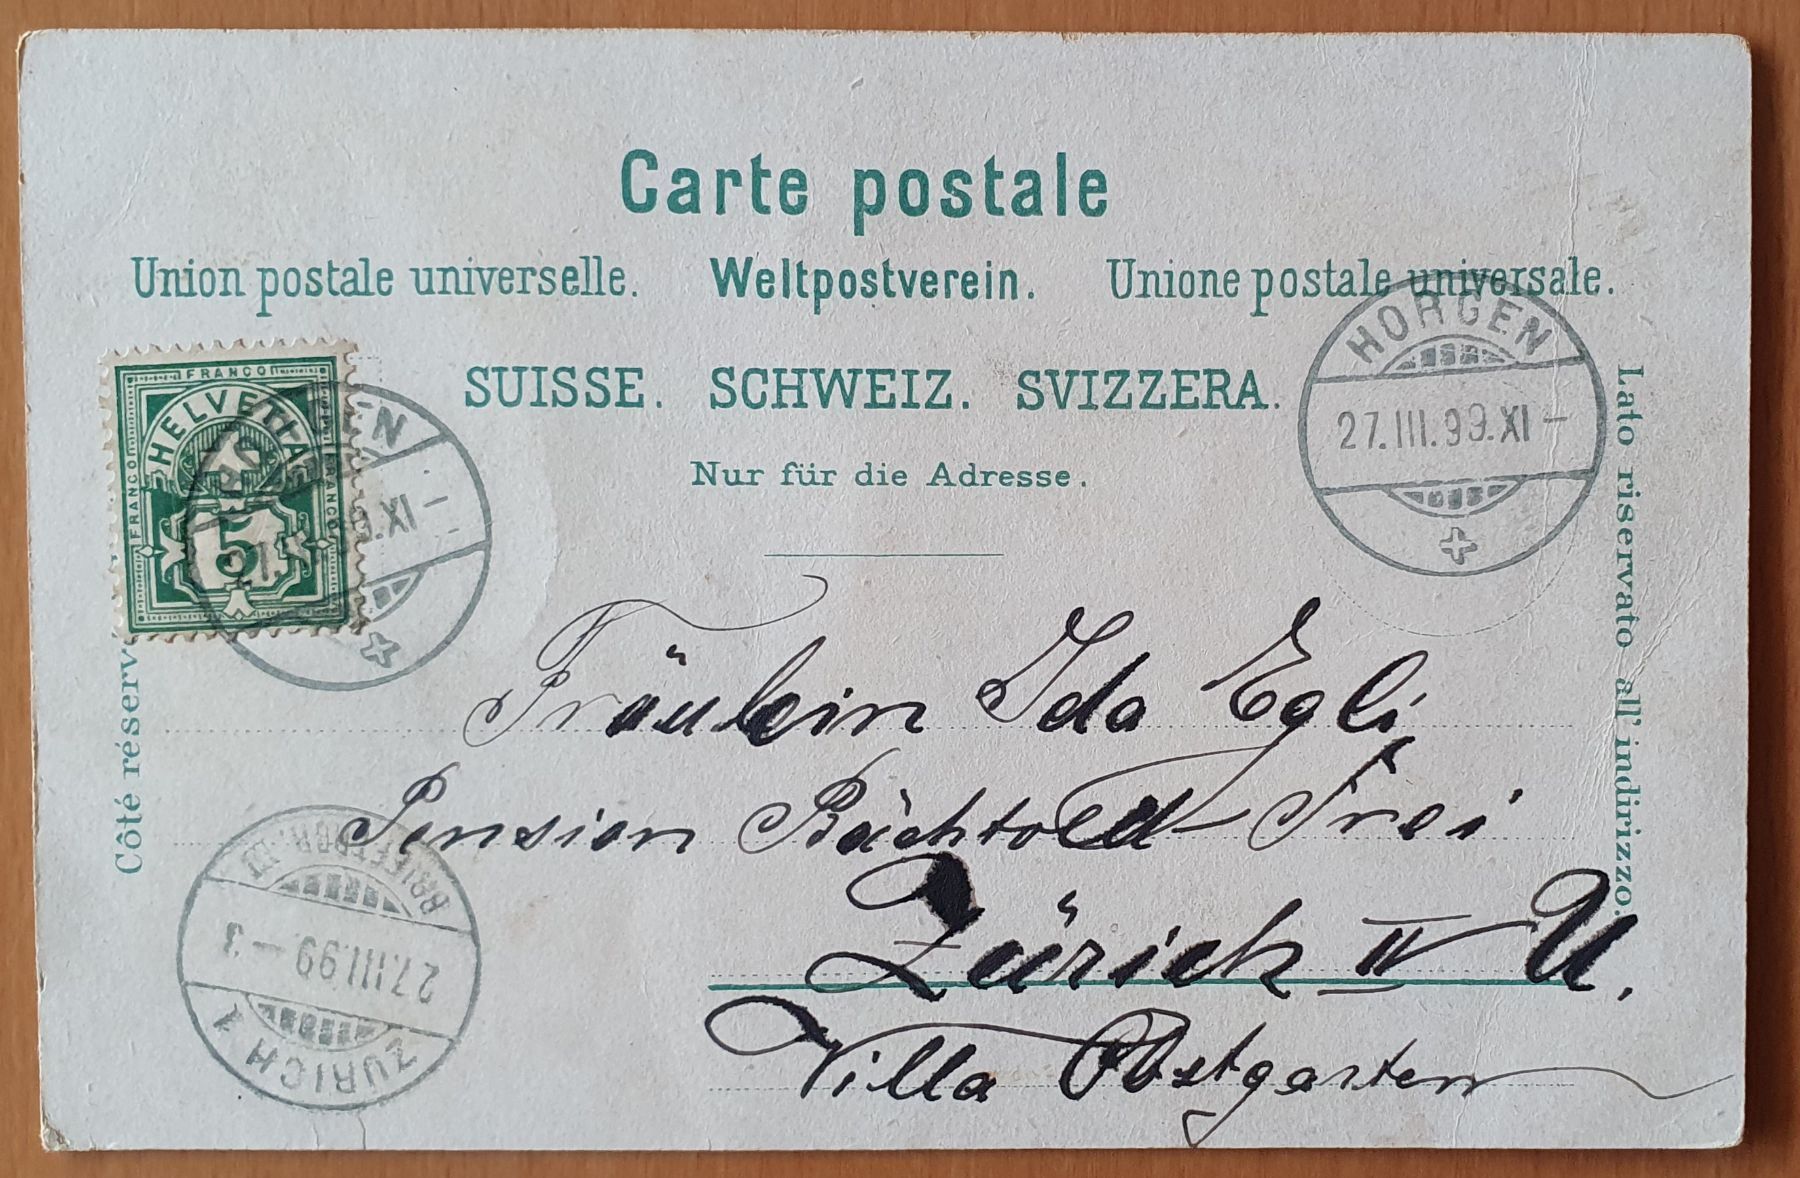 Carte postale
Union postale universelle. Weltpostverein. Unione postale universale.
SUISSE. SCHWEIZ. SVIZZERA.
Nur für die Adresse.
FRANCO
HELVETIA
FRANCO
FRANCO
5
HORGEN
27.III.99.XI-
HORGEN
.XI-
Côté réserv
Lato riservato all'indirizzo.
Fräulein Ida Egli
Pension Bächtold-Frei
Zürich IV U.
Villa Obstgarten
ZÜRICH 1
27.III.99-3
BRIEFTDGR.